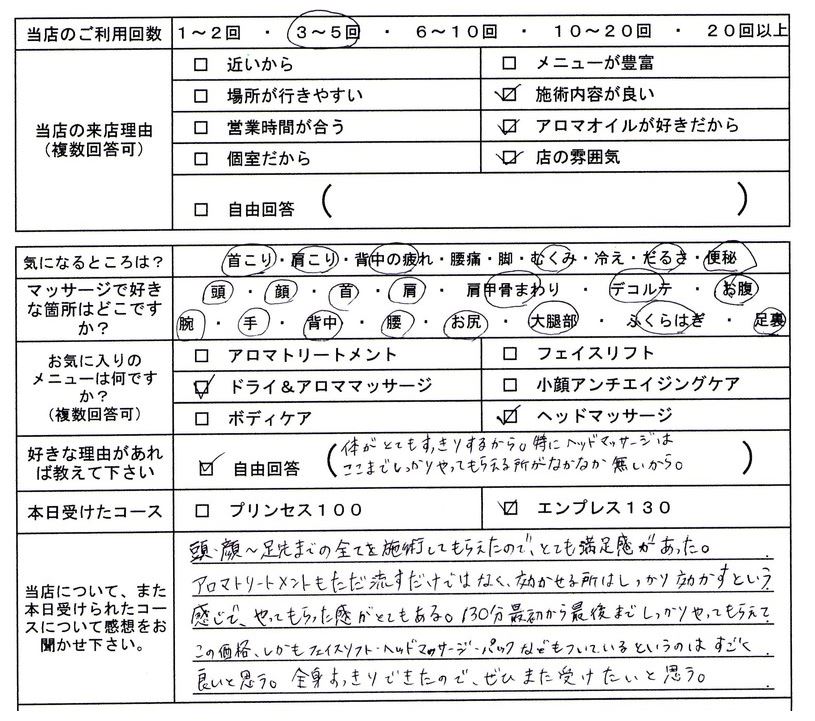 当店のご利用回数 1～2回 ・ 3～5回 ・ 6～10回 ・ 10～20回 ・ 20回以上
当店の来店理由
（複数回答可）
□ 近いから □ メニューが豊富
□ 場所が行きやすい ☑ 施術内容が良い
□ 営業時間が合う ☑ アロマオイルが好きだから
□ 個室だから ☑ 店の雰囲気
□ 自由回答 （ ）
気になるところは？ 首こり・肩こり・背中の疲れ・腰痛・脚・むくみ・冷え・だるさ・便秘
マッサージで好き
な箇所はどこです
か？
頭 ・ 顔 ・ 首 ・ 肩 ・ 肩甲骨まわり ・ デコルテ ・ お腹
腕 ・ 手 ・ 背中 ・ 腰 ・ お尻 ・ 大腿部 ・ ふくらはぎ ・ 足裏
お気に入りの
メニューは何です
か？
（複数回答可）
□ アロマトリートメント □ フェイスリフト
☑ ドライ＆アロママッサージ □ 小顔アンチエイジングケア
□ ボディケア ☑ ヘッドマッサージ
好きな理由があれ
ば教えて下さい
☑ 自由回答
（体がとてもすっきりするから。特にヘッドマッサージは
ここまでしっかりやってもらえる所がなかなか無いから。）
本日受けたコース □ プリンセス100 ☑ エンプレス130
当店について、また
本日受けられたコー
スについて感想をお
聞かせ下さい。
頭・顔～足先までの全てを施術してもらえたので、とても満足感があった。
アロマトリートメントもただ流すだけではなく、効かせる所はしっかり効かすという
感じで、やってもらった感がとてもある。130分最初から最後までしっかりやってもらえて
この価格、しかもフェイスリフト・ヘッドマッサージ・パックなどもついているというのはすごく
良いと思う。全身すっきりできたので、ぜひまた受けたいと思う。